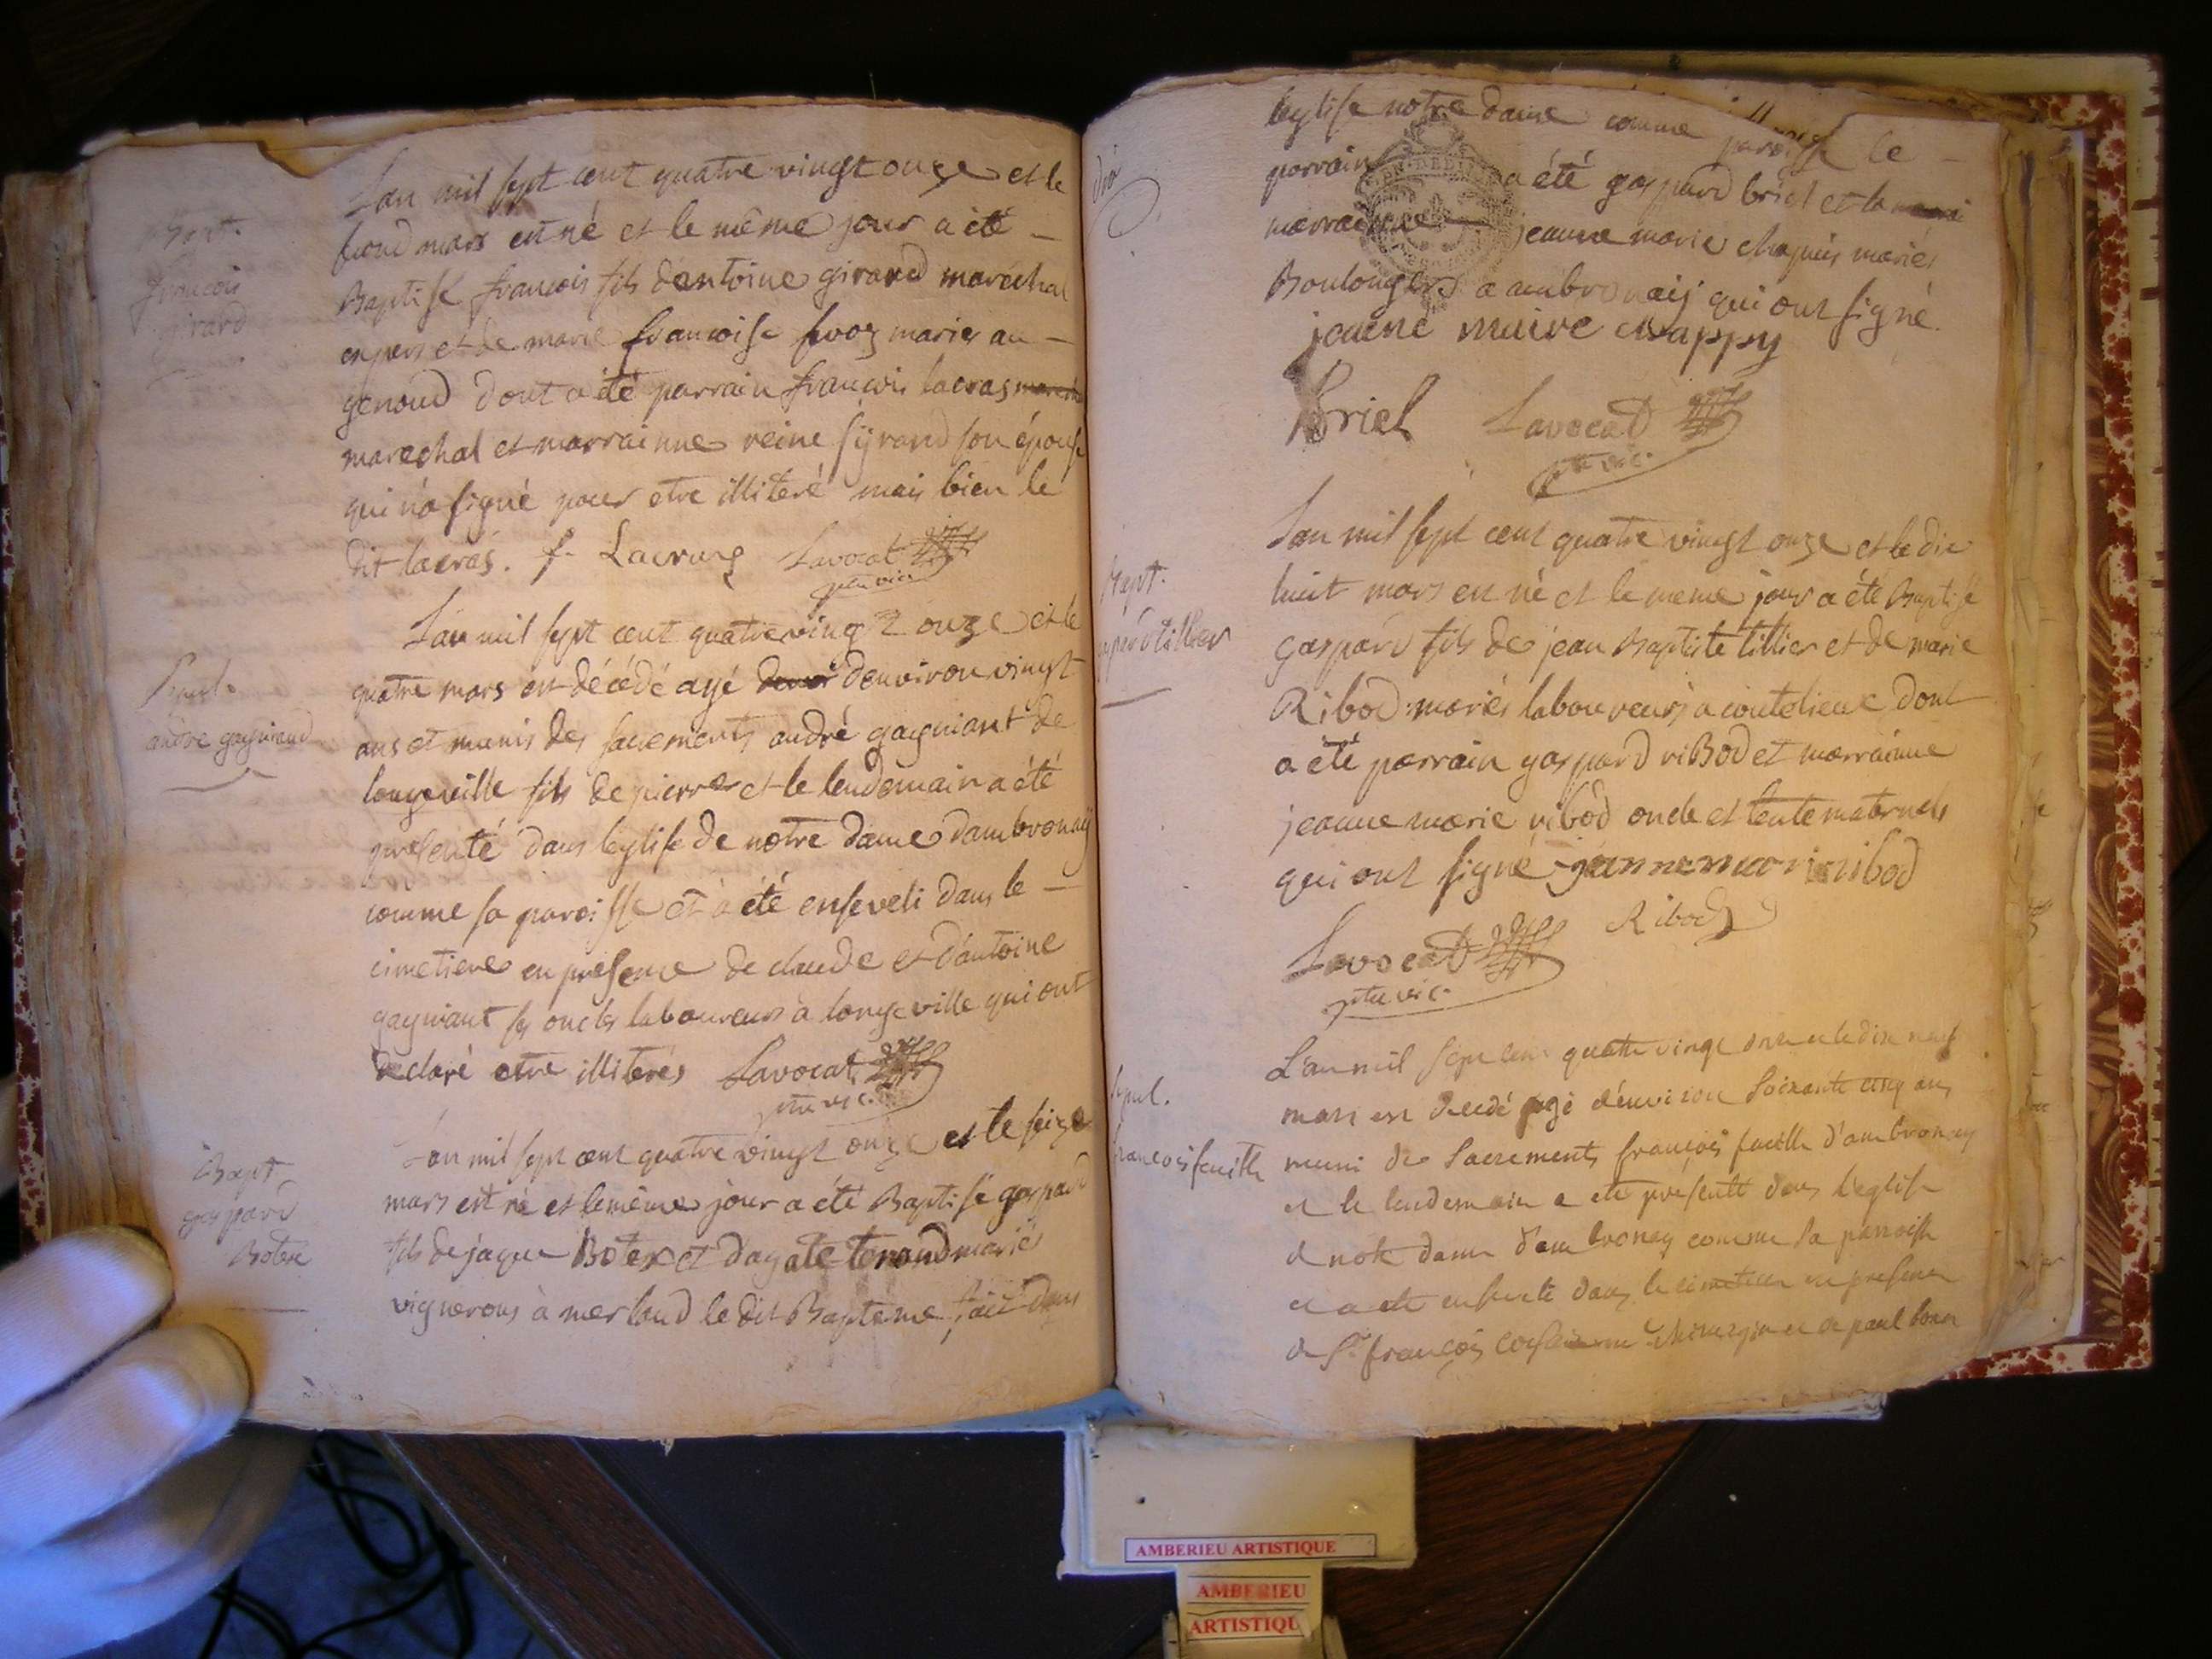 Bapt.
francois
girard
L'an mil sept cent quatre vingt onze et le
second mars est né et le même jour a été
Baptisé francois fils dantoine girard maréchal
expers et de marie francoise favoz mariés au
genoud dont a été parrain francois lacras
marechal et marrainne reine sijrand son épouse
qui n'a signé pour etre illiteré mais bien le
dit lacras. f. Lacras Lavocat
ptre vic.
Sepul.
andré gagniand
L'an mil sept cent quatre vingt onze et le
quatre mars est décédé agé denviron vingt
ans et munis des sacrements andré gagniant de
longeville fils de pierre et le lendemain a été
présenté dans leglise de notre dame dambronay
comme sa paroisse et a été enseveli dans le
cimetiere en présence de claude et d'antoine
gagniant ses oncles laboureurs à longeville qui ont
déclaré etre illiterés Lavocat
ptre vic.
Bapt.
gaspard
Botex
L'an mil sept cent quatre vingt onze et le seize
mars est né et le même jour a été Baptisé gaspard
fils de jaque Botex et d'agate tenand mariés
vignerons à merland le dit Bapteme fait dans
leglise notre dame comme paroisse le
parrain a été gaspard briel et la
marrainne jeanne marie chapuis mariés
Boulongers a ambronaij qui ont signé.
jeaene maire chappy
Briel Lavocat
ptre vic.
Bapt.
gaspard tillier
L'an mil sept cent quatre vingt onze et le dix
huit mars est né et le meme jour a été Baptisé
gaspard fils de jean Baptiste tillier et de marie
Ribod mariés laboureurs a coutelieue dont
a été parrain gaspard riBod et marrainne
jeanne marie ribod oncle et tente maternels
qui ont signé jeannemari ribod
Lavocat Ribod
ptre vic.
Sepul.
francois feuille
L'an mil sept cent quatre vingt onze et le dix neuf
mars est decedé agé d'environ soixante cinq ans
muni des Sacrements françois feuille d'ambronay
et le lendemain a eté presenté dans l'eglise
de notre dame d'ambronay comme sa paroisse
et a eté enseveli dans le cimetiere en presence
de Sr. françois chirurgien et de paul
AMBERIEU ARTISTIQUE
AMBERIEU
ARTISTIQU